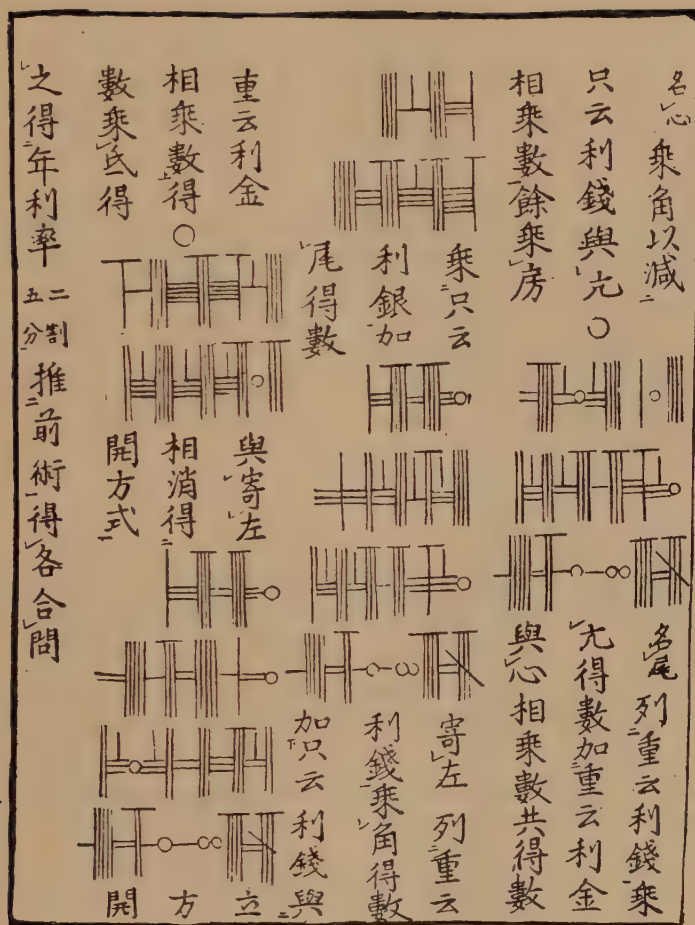 名心 乘角以減
只云利錢與亢〇
相乘數餘乘房
名尾 列重云利錢乘
亢得數加重云利金
與心相乘數共得數
乘只云
利銀加
尾得數
寄左 列重云
利錢乘角得數
加只云利錢與
重云利金
相乘數得〇
數乘氐得
與寄左
相消得
開方式
立
方
開
之得年利率 二割五分 推前術得各合問